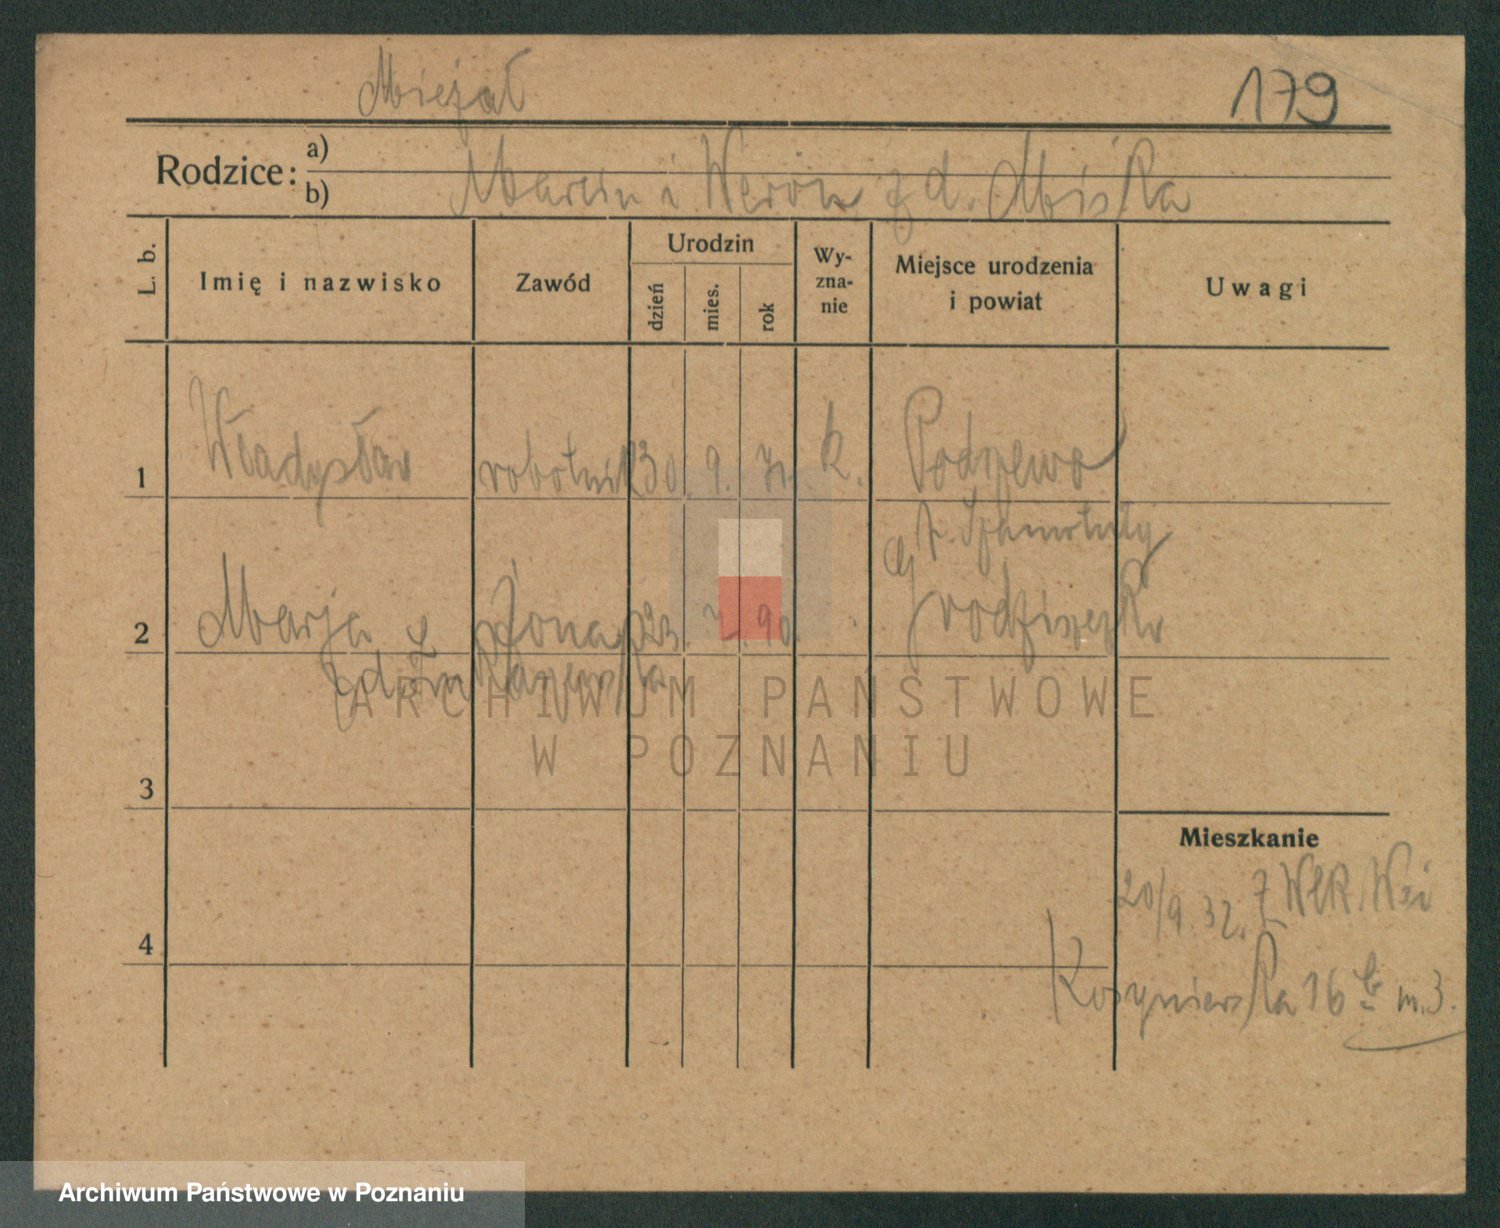 Miejał
179
Rodzice: a)
b) Marcin i Weron z d. Miśka
L. b.
Imię i nazwisko
Zawód
Urodzin
dzień
mies.
rok
Wy-
zna-
nie
Miejsce urodzenia
i powiat
Uwagi
1 Władysław robotnik 30. 9. k. Podrzewo
p. Szamotuły
2 Marja Żona 23. 90. Grodzisk
z d.
3
4
Mieszkanie
20/9. 32. Z
Kosynierska 16 b m. 3.
ARCHIWUM PAŃSTWOWE
W POZNANIU
Archiwum Państwowe w Poznaniu